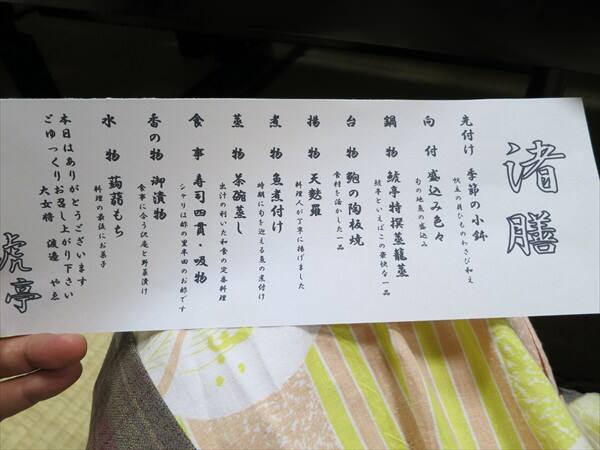 渚膳
先付け 季節の小鉢
帆立の貝ひものわさび和え
向付 盛込み色々
旬の地魚の盛込み
鍋物 鯱亭特撰蒸籠蒸
鯱亭といえばこの豪快な一品
台物 鮑の陶板焼
食材を活かした一品
揚物 天麩羅
料理人が丁寧に揚げました
煮物 魚煮付け
時期に旬を迎える魚の煮付け
蒸物 茶碗蒸し
出汁の利いた和食の定番料理
食事 寿司四貫・吸物
シャリは酢の里半田のお酢です
香の物 御漬物
食事に合う沢庵と野菜漬け
水物 蒟蒻もち
料理の最後にお菓子
本日はありがとうございます
ごゆっくりお召し上がり下さい
大女将 渡邉 やゑ
亭